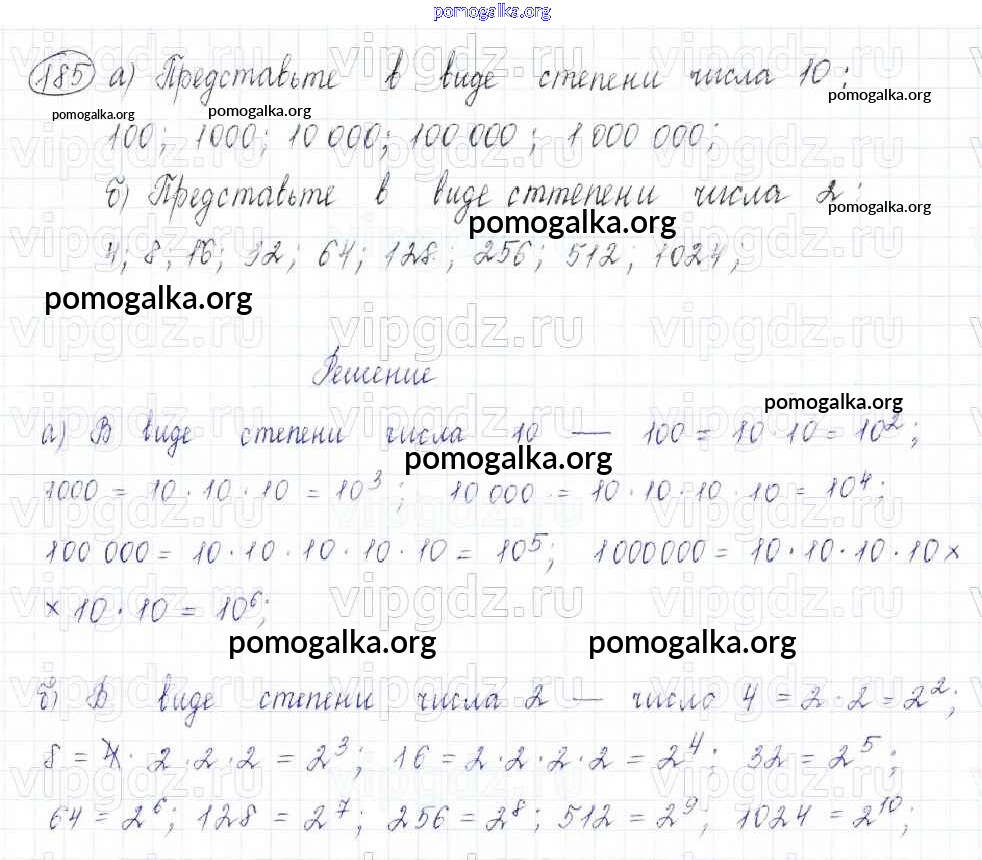 pomogalka.org
185 а) Представьте в виде степени числа 10:
pomogalka.org pomogalka.org pomogalka.org
100; 1000; 10 000; 100 000; 1 000 000;
б) Представьте в виде сттепени числа 2:
pomogalka.org pomogalka.org
4; 8; 16; 32; 64; 128; 256; 512; 1024;
pomogalka.org
vipgdz.ru vipgdz.ru vipgdz.ru
Решение
pomogalka.org
а) В виде степени числа 10 — 100 = 10 · 10 = 10²;
pomogalka.org
1000 = 10 · 10 · 10 = 10³; 10 000 = 10 · 10 · 10 · 10 = 10⁴;
100 000 = 10 · 10 · 10 · 10 · 10 = 10⁵; 1000000 = 10 · 10 · 10 · 10 ×
× 10 · 10 = 10⁶;
pomogalka.org pomogalka.org
б) В виде степени числа 2 — число 4 = 2 · 2 = 2²;
8 = 2 · 2 · 2 = 2³; 16 = 2 · 2 · 2 · 2 = 2⁴; 32 = 2⁵;
64 = 2⁶; 128 = 2⁷; 256 = 2⁸; 512 = 2⁹; 1024 = 2¹⁰;